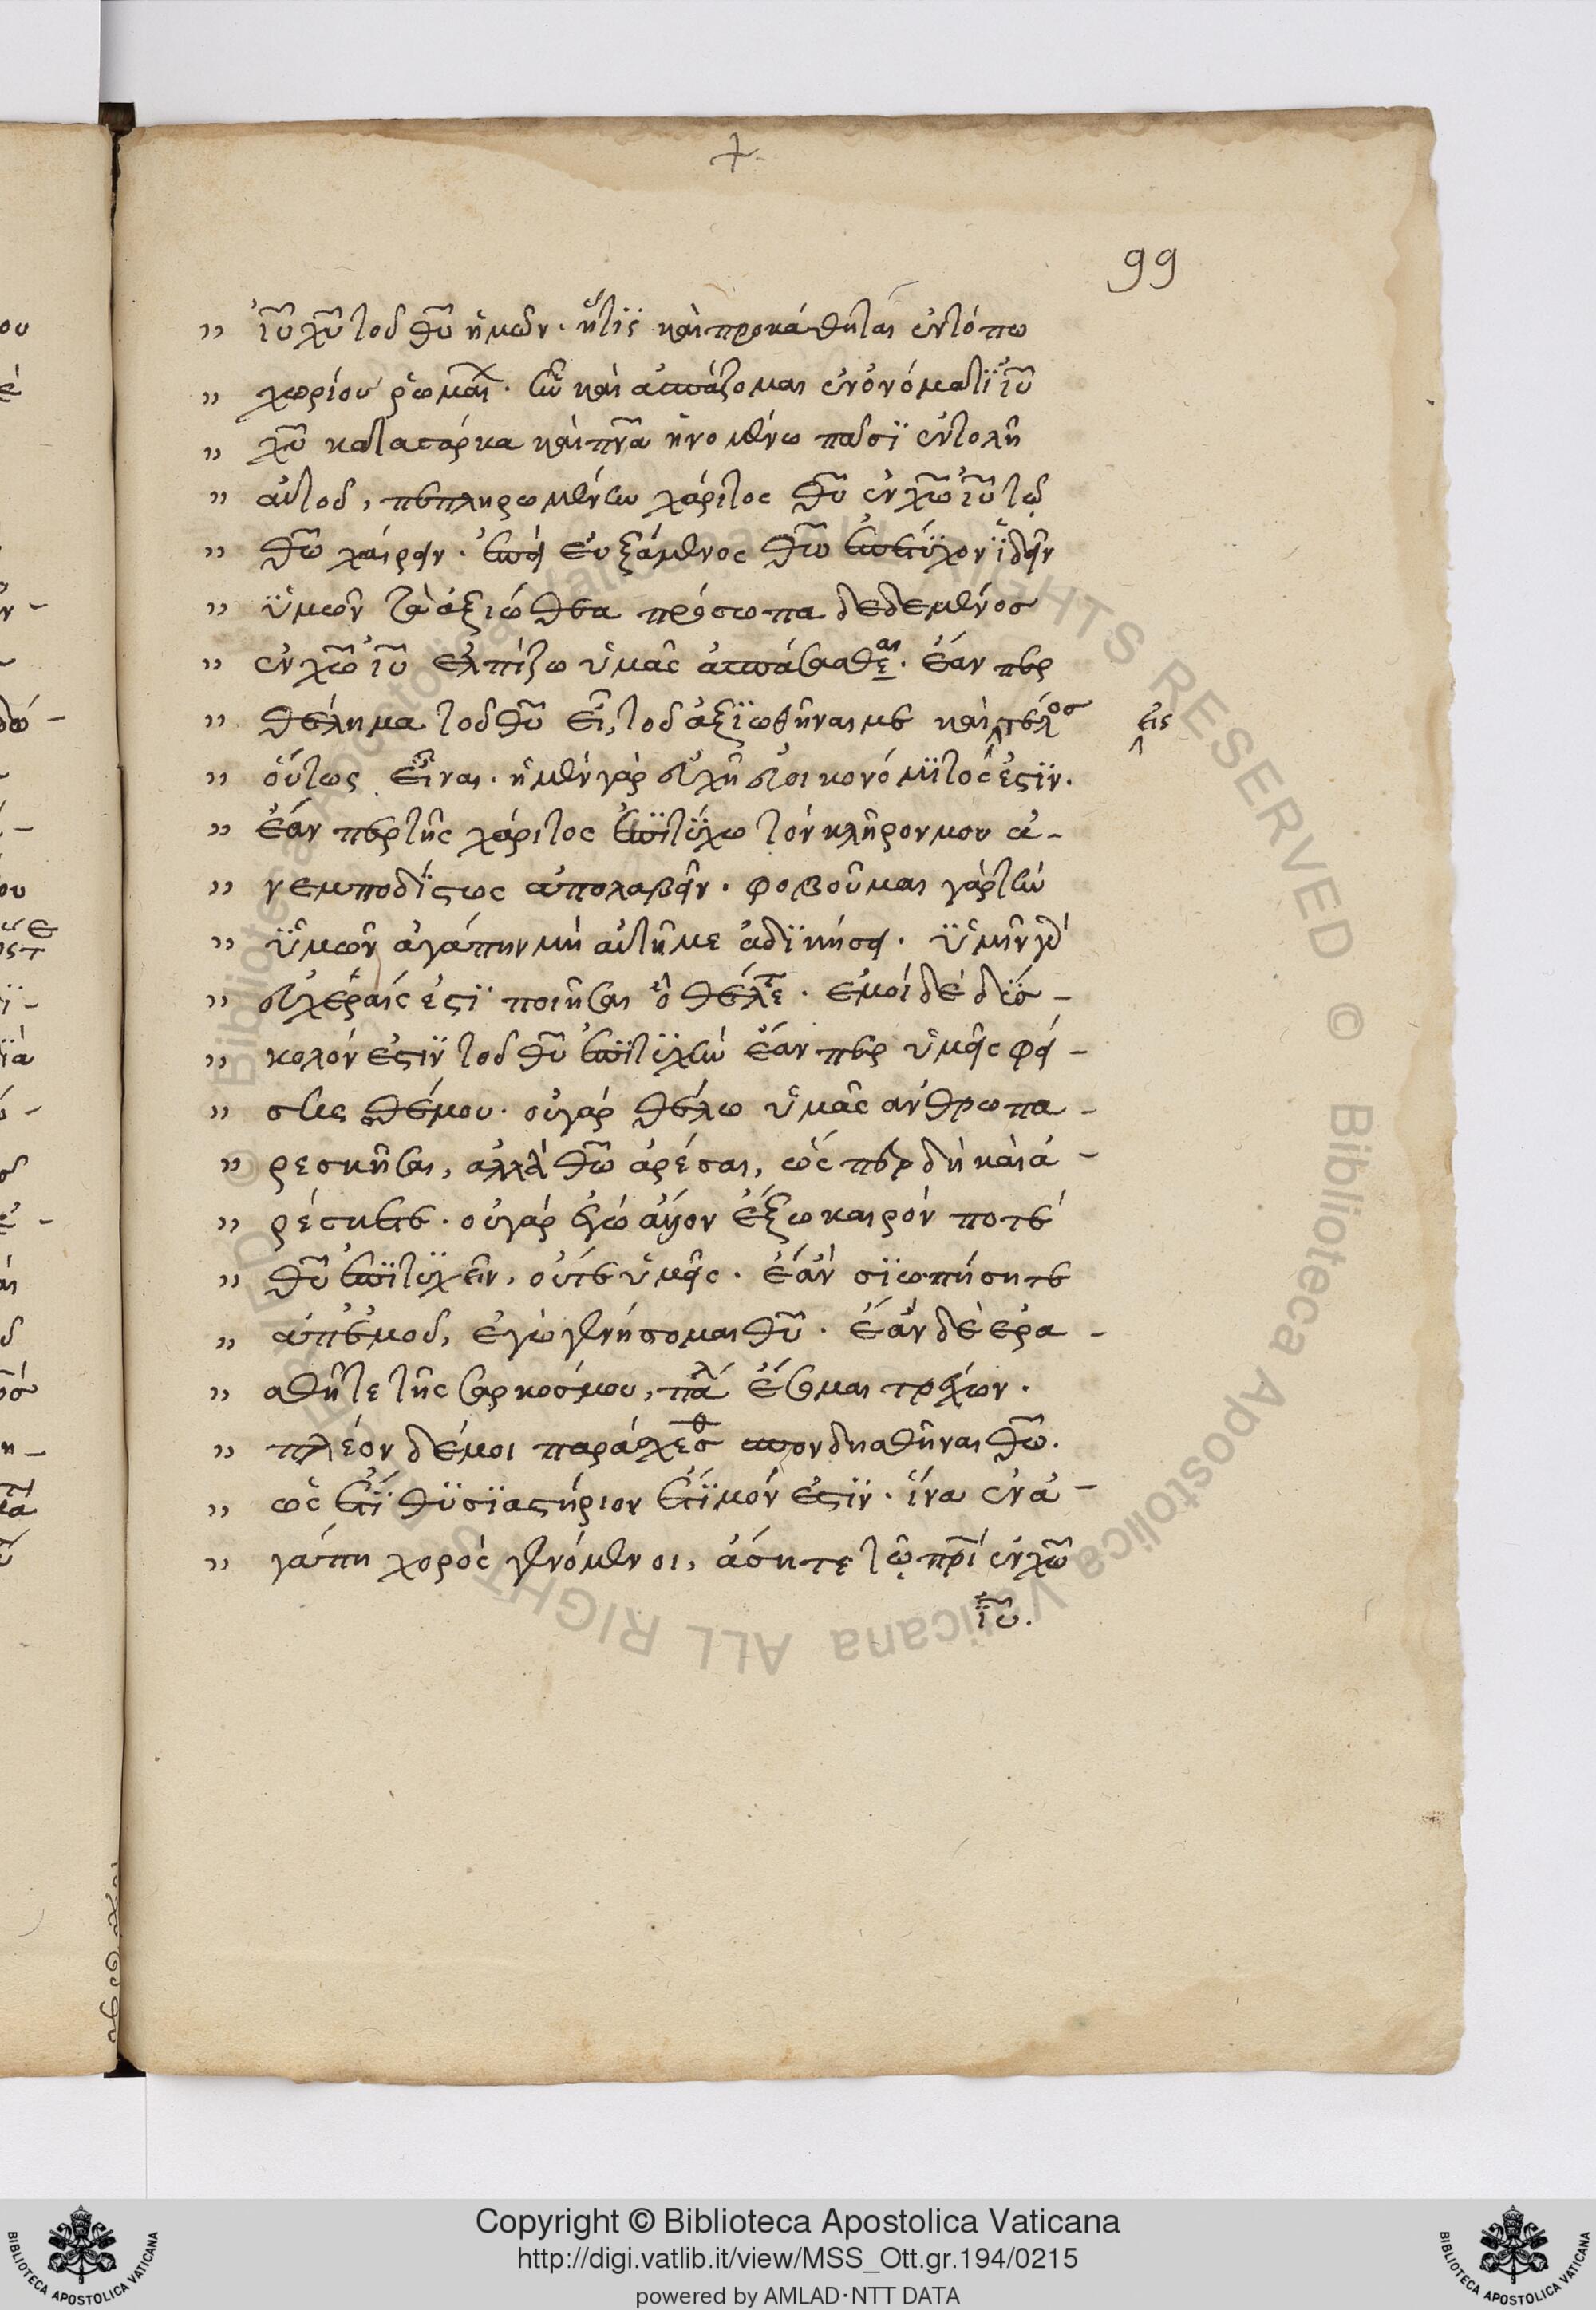 99
ἰυ̅ χυ̅ τοῦ θυ̅ ἡμῶν. ἥτις καὶ προκάθηται ἐν τόπω
χωρίου ῥωμαι. ἣν καὶ ἀσπάζομαι ἐν ὀνόματϊ ἰυ̅
χυ̅ κατα σάρκα καὶ πνα̅ ἡνομένω πάσϊ ἐντολῆ
αὐτοῦ, πεπληρωμένην χάριτος θυ̅ ἐν χω̅ ἰυ̅ τῶ
θω̅ χαίρειν. ἐπεὶ εὐξάμενος θω̅ ἐπέτϋχον ἰδεῖν
ϋμῶν τὰ ἀξιόθεα πρόσωπα δεδεμένοσ
ἐν χω̅ ἰυ̅ ἐλπίζω ὑμᾶς ἀσπάσασθαι. ἐάν περ
θέλημα τοῦ θυ̅ εἶ, τοῦ ἀξϊωθῆναι με καὶ τέλοσ
εἰς
οὕτως εἶναι. ἡ μὲν γὰρ ἀρχὴ εὐοικονόμϊτος ἐστϊν.
ἐάν περ τῆς χάριτος ἐπϊτύχω τὸν κλῆρον μου ἀ-
νεμποδίστως ἀπολαβεῖν. φοβοῦμαι γὰρ τὴν
ϋμῶν ἀγάπην μὴ αὐτή με ἀδϊκήσει. ϋμῖν γὰρ
εὐχεραίς ἐστϊ ποιῆσαι ὃ θέλετε. ἐμοὶ δὲ δϋσ-
κολόν ἐστϊν τοῦ θυ̅ ἐπϊτυχεῖν ἐάν περ ὑμεῖς φεί-
σησθέ μου. οὐ γὰρ θέλω ὑμᾶς ἀνθρωπα-
ρεσκῆσαι, ἀλλὰ θω̅ ἀρέσαι, ὥς περ δὴ καὶ ἀ-
ρέσκετε. οὐ γὰρ ἐγώ ἄγιον ἔξω καιρόν ποτὲ
θυ̅ ἐπϊτυχεῖν, οὔτε ὑμεῖς. ἐὰν σϊωπήσητε
ἀπ' ἐμοῦ, ἐγὼ γενήσομαι θυ̅. ἐὰν δὲ ἐρα-
σθῆτε τῆς σαρκός μου, πάλ ἔσομαι τρέχων.
πλέον δέ μοι παράσχεσθ σπονδησθῆναι θω̅.
ὡς ἔτϊ θϋσϊαστήριον ἕτϊμόν ἐστϊν. ἵνα ἐν ἀ-
γάπη χορὸς γενόμενοι, ἄσητε τῶ πρι̅ ἐν χω̅
ἰυ̅.
Copyright © Biblioteca Apostolica Vaticana
http://digi.vatlib.it/view/MSS_Ott.gr.194/0215
powered by AMLAD·NTT DATA
BIBLIOTECA APOSTOLICA VATICANA
BIBLIOTECA APOSTOLICA VATICANA
© Biblioteca Apostolica Vaticana ALL RIGHTS RESERVED